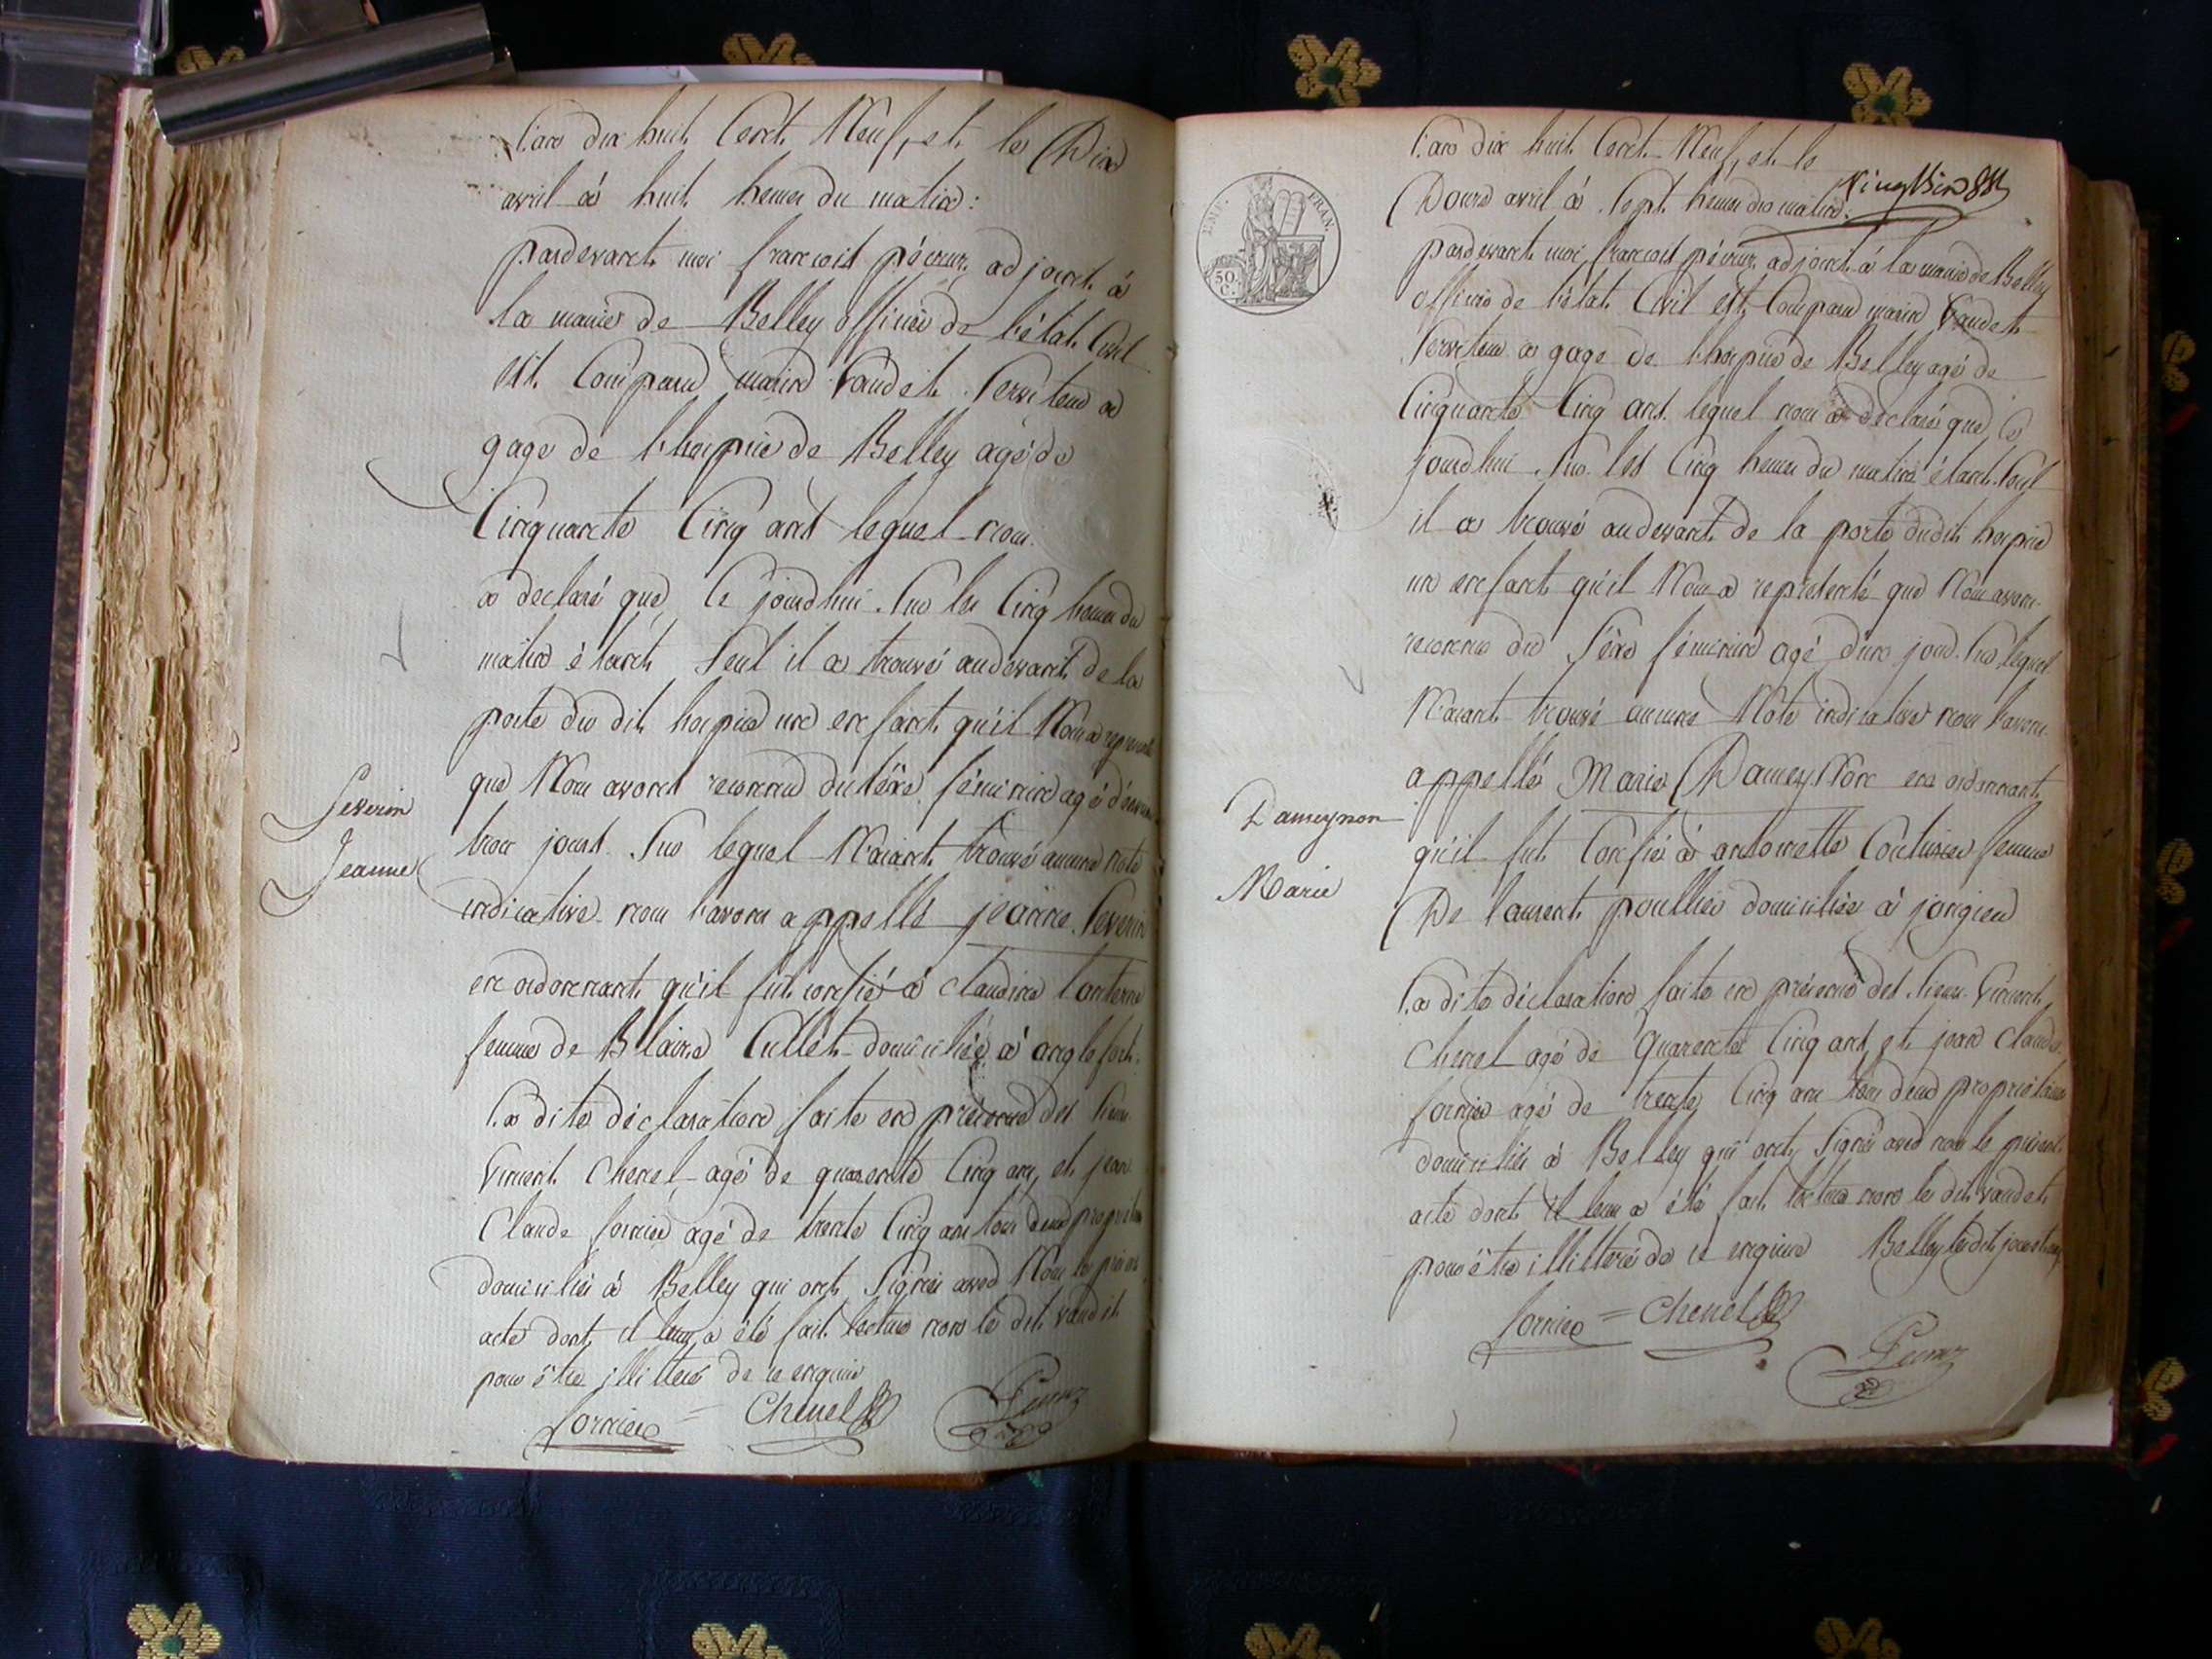 L'an dix huit Cent Neuf, et le Dix
avril à huit heures du matin :
pardevant moi françois pévrux adjoint à
la mairie de Belley officier de l'état Civil
est Comparu marin Vaudet Serviteur a
gage de l'hospice de Belley agé de
Cinquante Cinq ans lequel nous
a declaré que Ce jourdhui Sur les Cinq heures du
matin étant Seul il a trouvé audevant de la
porte du dit hospice un enfant qu'il Nous a représenté
que Nous avons reconnu du séxe féminin agé d'environ
trois jours Sur lequel N'aiant trouvé aucune note
indicative nous l'avons appellé jeanne Severin
Severin
Jeanne
en ordonnant qu'il fut confié à Claudine
femme de Blaise Cullet domiciliée à anglefort.
La dite déclaration faite en présence des sieurs
Vincent Chenel agé de quarente Cinq ans, et jean
Claude fornier agé de trente Cinq ans tous deux propriétaires
domiciliés à Belley qui ont Signés avec Nous le présent
acte dont il leur a été fait lecture non le dit vaudet
pour être illitteré de ce enquis
fornier = Chenel
L'an dix huit Cent Neuf, et le
Douze avril à Sept heures du matin :
pardevant moi françois pévrux adjoint à la mairie de Belley
officier de l'état Civil est Comparu marin Vaudet
Serviteur a gage de l'hospice de Belley agé de
Cinquante Cinq ans lequel nous a declaré que ce
jourdhui Sur les Cinq heures du matin étant Seul
il a trouvé audevant de la porte dudit hospice
un enfant qu'il Nous a représenté que Nous avons
reconnu du Séxe féminin agé d'un jour Sur lequel
N'aiant trouvé aucune Note indicative nous l'avons
appellé Marie Dameynon en ordonnant
Dameynon
Marie
qu'il fut Confié à antoinette Couturier femme
De laurent poullier domiciliée à jongieu
La dite déclaration faite en présence des sieurs Vincent
Chenel agé de quarente Cinq ans et jean Claude
fornier agé de trente Cinq ans tous deux propriétaires
domiciliés à Belley qui ont Signés avec nous le présent
acte dont il leur a été fait lecture non le dit vaudet
pour être illitteré de ce enquis Belley les dits jour et an
fornier = Chenel
EMP. FRAN.
50 C.